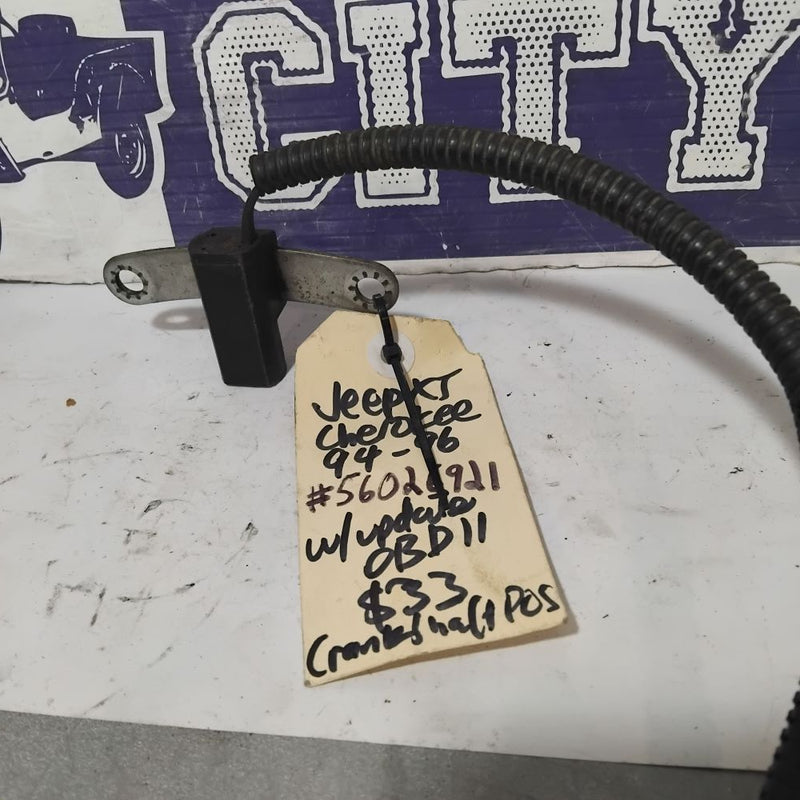 CITY
Jeep XJ
Cherokee
94-96
#56026921
w/update
OBD II
$33
Crankshaft POS